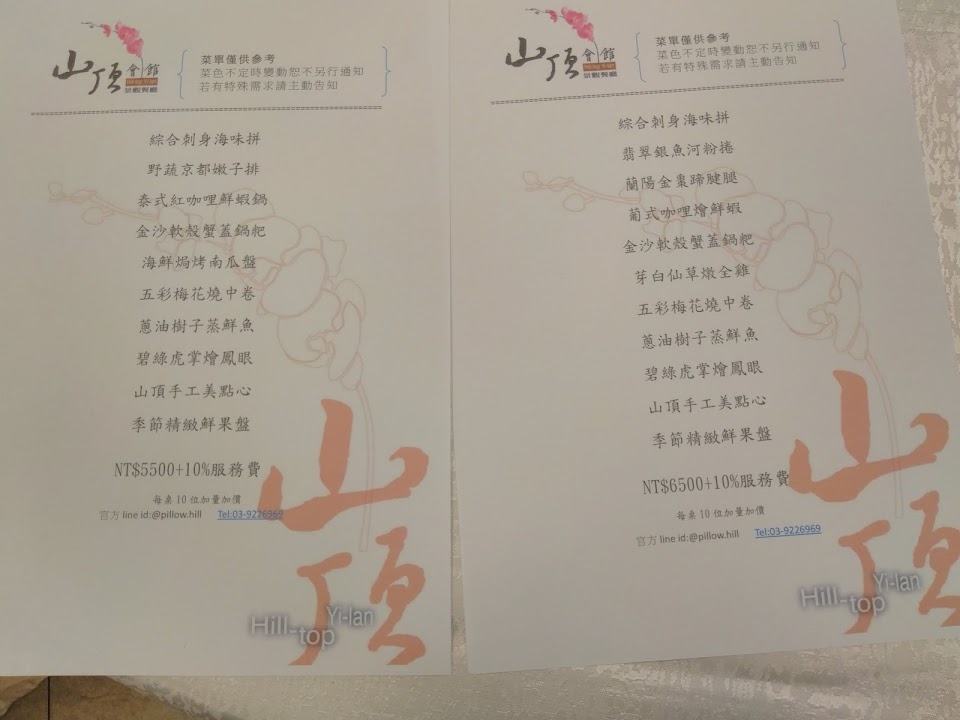 山頂會館
景觀餐廳
菜單僅供參考
菜色不定時變動恕不另行通知
若有特殊需求請主動告知
綜合刺身海味拼
野蔬京都嫩子排
泰式紅咖哩鮮蝦鍋
金沙軟殼蟹蓋鍋粑
海鮮焗烤南瓜盤
五彩梅花燒中卷
蔥油樹子蒸鮮魚
碧綠虎掌燴鳳眼
山頂手工美點心
季節精緻鮮果盤
NT$5500+10%服務費
每桌10位加量加價
官方 line id:@pillow.hill Tel:03-9226969
山頂
Hill-top Yi-lan
山頂會館
景觀餐廳
菜單僅供參考
菜色不定時變動恕不另行通知
若有特殊需求請主動告知
綜合刺身海味拼
翡翠銀魚河粉捲
蘭陽金棗蹄腱腿
葡式咖哩燴鮮蝦
金沙軟殼蟹蓋鍋粑
芽白仙草燉全雞
五彩梅花燒中卷
蔥油樹子蒸鮮魚
碧綠虎掌燴鳳眼
山頂手工美點心
季節精緻鮮果盤
NT$6500+10%服務費
每桌10位加量加價
官方 line id:@pillow.hill Tel:03-9226969
山頂
Hill-top Yi-lan